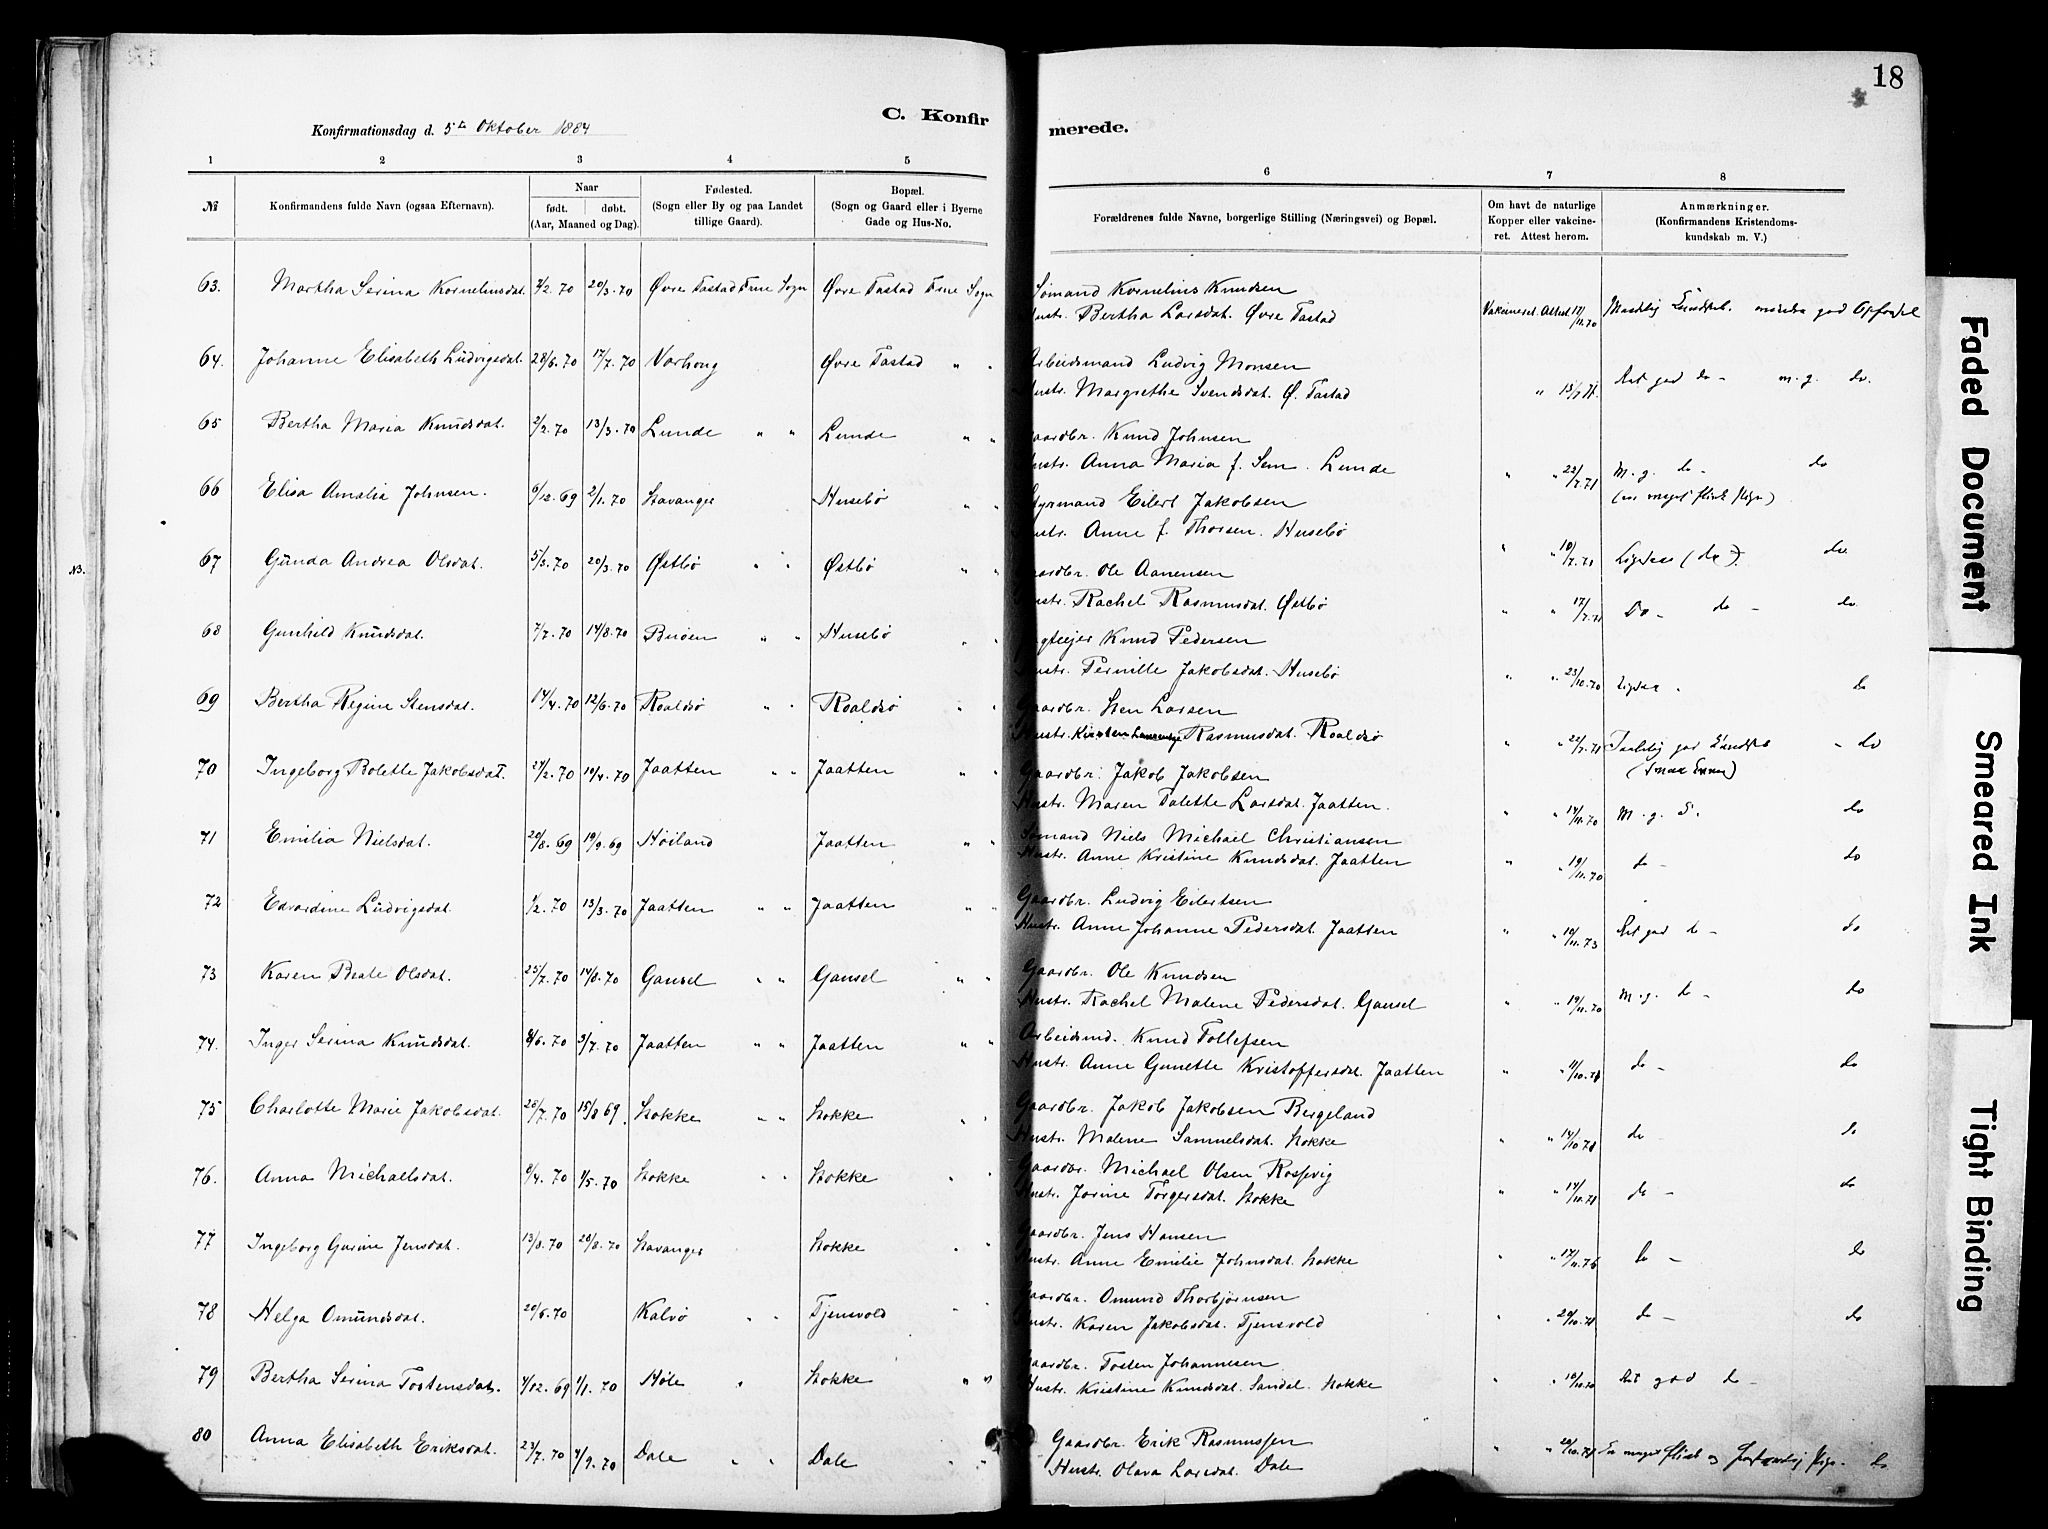 18
Konfirmationsdag d. 5te Oktober 1884
C. Konfirmerede.
1 2 3 4 5 6 7 8
№ Konfirmandens fulde Navn (ogsaa Efternavn). Naar født. døbt. (Aar, Maaned og Dag). Fødested. (Sogn eller By og paa Landet tillige Gaard). Bopæl. (Sogn og Gaard eller i Byerne Gade og Hus-No. Forældrenes fulde Navne, borgerlige Stilling (Næringsvei) og Bopæl. Om havt de naturlige Kopper eller vakcineret. Attest herom. Anmærkninger. (Konfirmandens Kristendomskundskab m. V.)
63. Martha Serina Kornelinsdat. 20/3.70 Øvre Tastad Frue Sogn Øvre Tastad Frue Sogn Sømand Kornelius Knudsen
Hustr. Bertha Larsdat. Øvre Tastad Vakcineret. Attest 17/11.70
64. Johanne Elisabeth Ludvigsdat. 28/6.70 17/7.70 Varhoug Øvre Tastad " " Arbeidsmand Ludvig Monsen
Hustr. Margrethe Svendsdat. Ø. Tastad " Ret god do - m.g. do.
65 Bertha Maria Knudsdat. 2/2.70 13/3.70 Lunde " " Lunde " " Gaardbr. Knud Johnsen
Hustr. Anna Maria f. Sem. Lunde " " 22/7.71 M.g. do - do
66 Elisa Amalia Johnsen. 6/12.69 2/1.70 Stavanger Husebø " " Styrmand Eilert Jakobsen
Hustr. Anne f. Thorsen. Husebø " " 10/7.71
67 Gunda Andrea Olsdat. 5/3.70 20/3.70 Østbø " " Østbø " " Gaardbr. Ole Aanensen
Hustr. Rachel Rasmusdat. Østbø " " 17/7.71 Do - do - do
68 Gunhild Knudsdat. 7/7.70 14/8.70 Buøen " " Husebø " " Knud Pedersen
Hustr. Pernille Jakobsdat. Husebø " " 23/10.70 Ligesaa " do
69 Bertha Regine Stensdat. 14/4.70 12/6.70 Roaldsø " " Roaldsø " " Gaardbr. Sten Larsen
Hustr. Kirsten Rasmusdat. Roaldsø " do
70 Ingeborg Bolette Jakobsdat. 27/2.70 10/4.70 Jaatten " " Jaatten " " Gaardbr. Jakob Jakobsen
Hustr. Maren Talette Larsdat. Jaatten. " " 14/11.70 M.g. do
71 Emilia Nielsdat. 20/8.69 19/9.69 Høiland Jaatten " " Sømand Niels Michael Christiansen
Hustr. Anne Kristine Knudsdat. Jaatten " " 19/11.70 do - do
72 Edvardine Ludvigsdat. 1/2.70 13/3.70 Jaatten " " Jaatten " " Gaardbr. Ludvig Eilertsen
Hustr. Anne Johanne Pedersdat. Jaatten " " 19/11.73 Ret god do - do
73 Karen Beate Olsdat. 23/7.70 14/8.70 Gausel " " Gausel " " Gaardbr. Ole Knudsen
Hustr. Rachel Malene Pedersdat. Gausel " " 19/11.70 M.g. do - do
74. Inger Serina Knudsdat. 8/6.70 3/7.70 Jaatten " " Jaatten " " Arbeidsmd. Knud Tollefsen
Hustr. Anne Gunette Kristoffersdat. Jaatten " " 11/10.71 do - do
75 Charlotte Marie Jakobsdat. 28/7.70 15/8 69. Stokke " " Stokke " Gaardbr. Jakob Jakobsen Bergeland
Hustr. Malene Samuelsdat. Stokke " " 14/10.71 do - do
76. Anna Michaelsdat. 6/4.70 1/5.70 Stokke " " Stokke " " Gaardbr. Michael Olsen Rossevig
Hustr. Jorine Torgersdat. Stokke " " 14/10.71 do - do
77 Ingeborg Gurine Jensdat. 13/8.70 28/8.70 Stavanger Stokke " " Gaardbr. Jens Hansen
Hustr. Anne Emilie Johnsdat. Stokke " " 17/11.76 do - do
78 Helga Omundsdat. 20/6.70 Kalvø " " Tjensvold " " Gaardbr. Omund Thorbjørnsen
Hustr. Karen Jakobsdat. Tjensvold " " 20/10.71 do - do
79 Bertha Serina Tostensdat. 4/12.69 1/1.70 Høle " Stokke " " Gaardbr. Tosten Johannesen
Hustr. Kristine Knudsdat. Sandal. Stokke " " 10/10.70 Ret god do -
80 Anna Elisabeth Eriksdat. 23/7.70 4/9.70 Dale " " Dale " " Gaardbr. Erik Rasmussen
Hustr. Olava Larsdat. Dale " " 20/10.71 En meget flink og Pige. do
Faded Document
Smeared Ink
Tight Binding